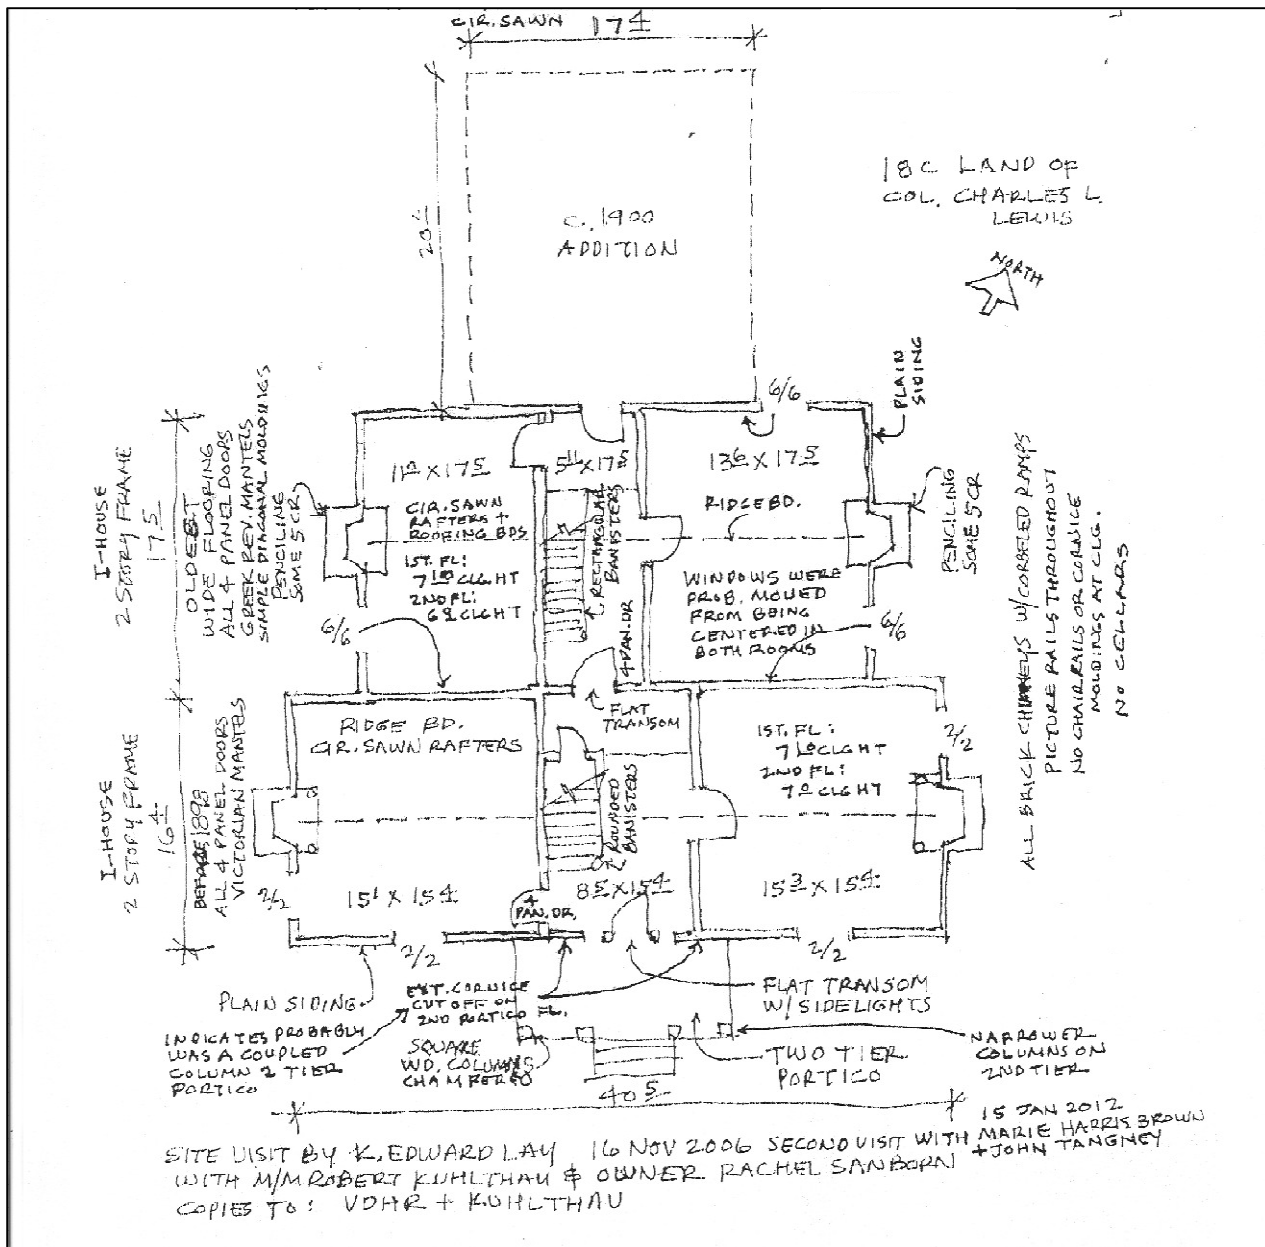 CIR. SAWN 17 4
20 4
C. 1900
ADDITION
18C LAND OF
COL. CHARLES L.
LEWIS
NORTH
6/6
PLAIN
SIDING
I-HOUSE
2 STORY FRAME
17 5
OLDEST
WIDE FLOORING
ALL 4 PANEL DOORS
GREEK REV. MANTELS
SIMPLE DIAGONAL MOLDINGS
PENCILING
SOME 5CR
17 5
5 11 X 17 5
13 6 X 17 5
CIR. SAWN
RAFTERS +
ROOFING BDS
1ST. FL:
7 10 CLGHT
2ND FL:
CLGHT
RECTANGULAR
BANISTERS
RIDGE BD.
PENCILING
SOME 5CR
WINDOWS WERE
PROB. MOVED
FROM BEING
CENTERED IN
BOTH ROOMS
4 PAN. DR
6/6
6/6
ALL BRICK CHIMNEYS W/ CORBELED RAMPS
PICTURE RAILS THROUGHOUT
NO CHAIR RAILS OR CORNICE
MOLDINGS AT CLG.
NO CELLARS
FLAT
TRANSOM
I-HOUSE
2 STORY FRAME
16 4
BEFORE 1898
ALL 4 PANEL DOORS
VICTORIAN MANTES
RIDGE BD.
CIR. SAWN RAFTERS
1ST. FL:
7 10 CLGHT
2ND FL:
CLGHT
2/2
ROUNDED
BANISTERS
2/2
15 1 X 15 4
4
PAN. DR.
8 5 X 15 4
15 3 X 15 4
2/2
2/2
PLAIN SIDING
EXT. CORNICE
CUT OFF ON
2ND PORTICO FL.
FLAT TRANSOM
W/ SIDELIGHTS
INDICATES PROBABLY
WAS A COUPLED
COLUMN 2 TIER
PORTICO
SQUARE
WD. COLUMNS
CHAMFERED
TWO TIER
PORTICO
NARROWER
COLUMNS ON
2ND TIER
40 5
15 JAN 2012
SITE VISIT BY K. EDWARD LAY 16 NOV 2006 SECOND VISIT WITH MARIE HARRIS BROWN
+ JOHN TANGNEY
WITH M/M ROBERT KUHLTHAU & OWNER RACHEL SANBORN
COPIES TO: VDHR + KUHLTHAU